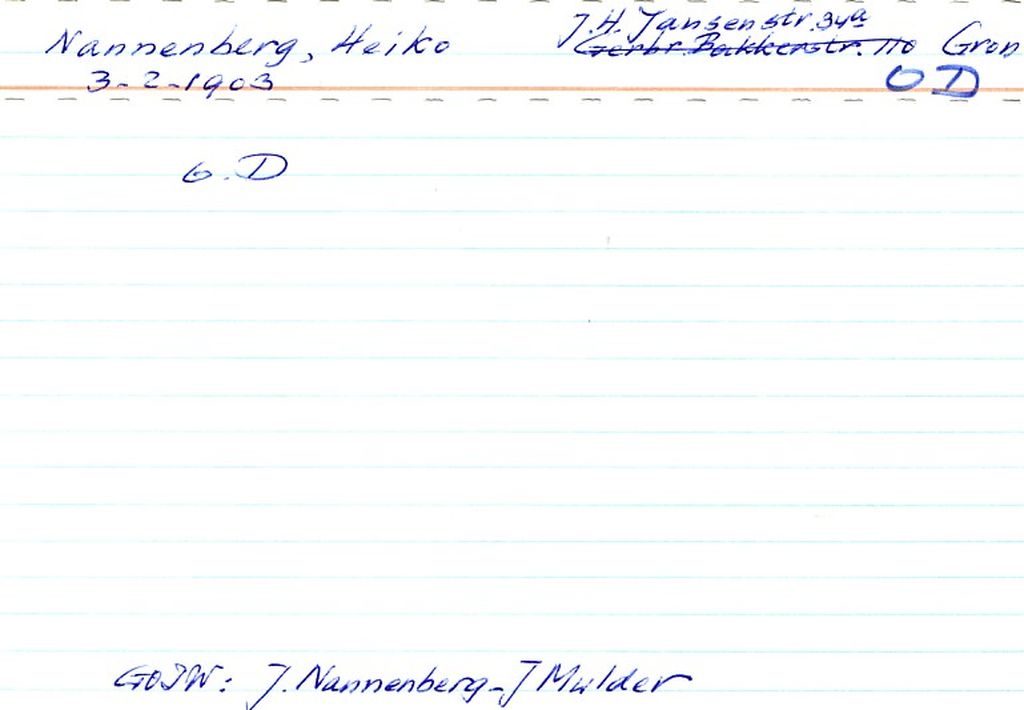 Nannenberg, Heiko J.H. Jansenstr. 34a
Gerbr. Bakkerstr. 110 Gron
3-2-1903 OD
6.D
GOIW: J. Nannenberg-J Mulder